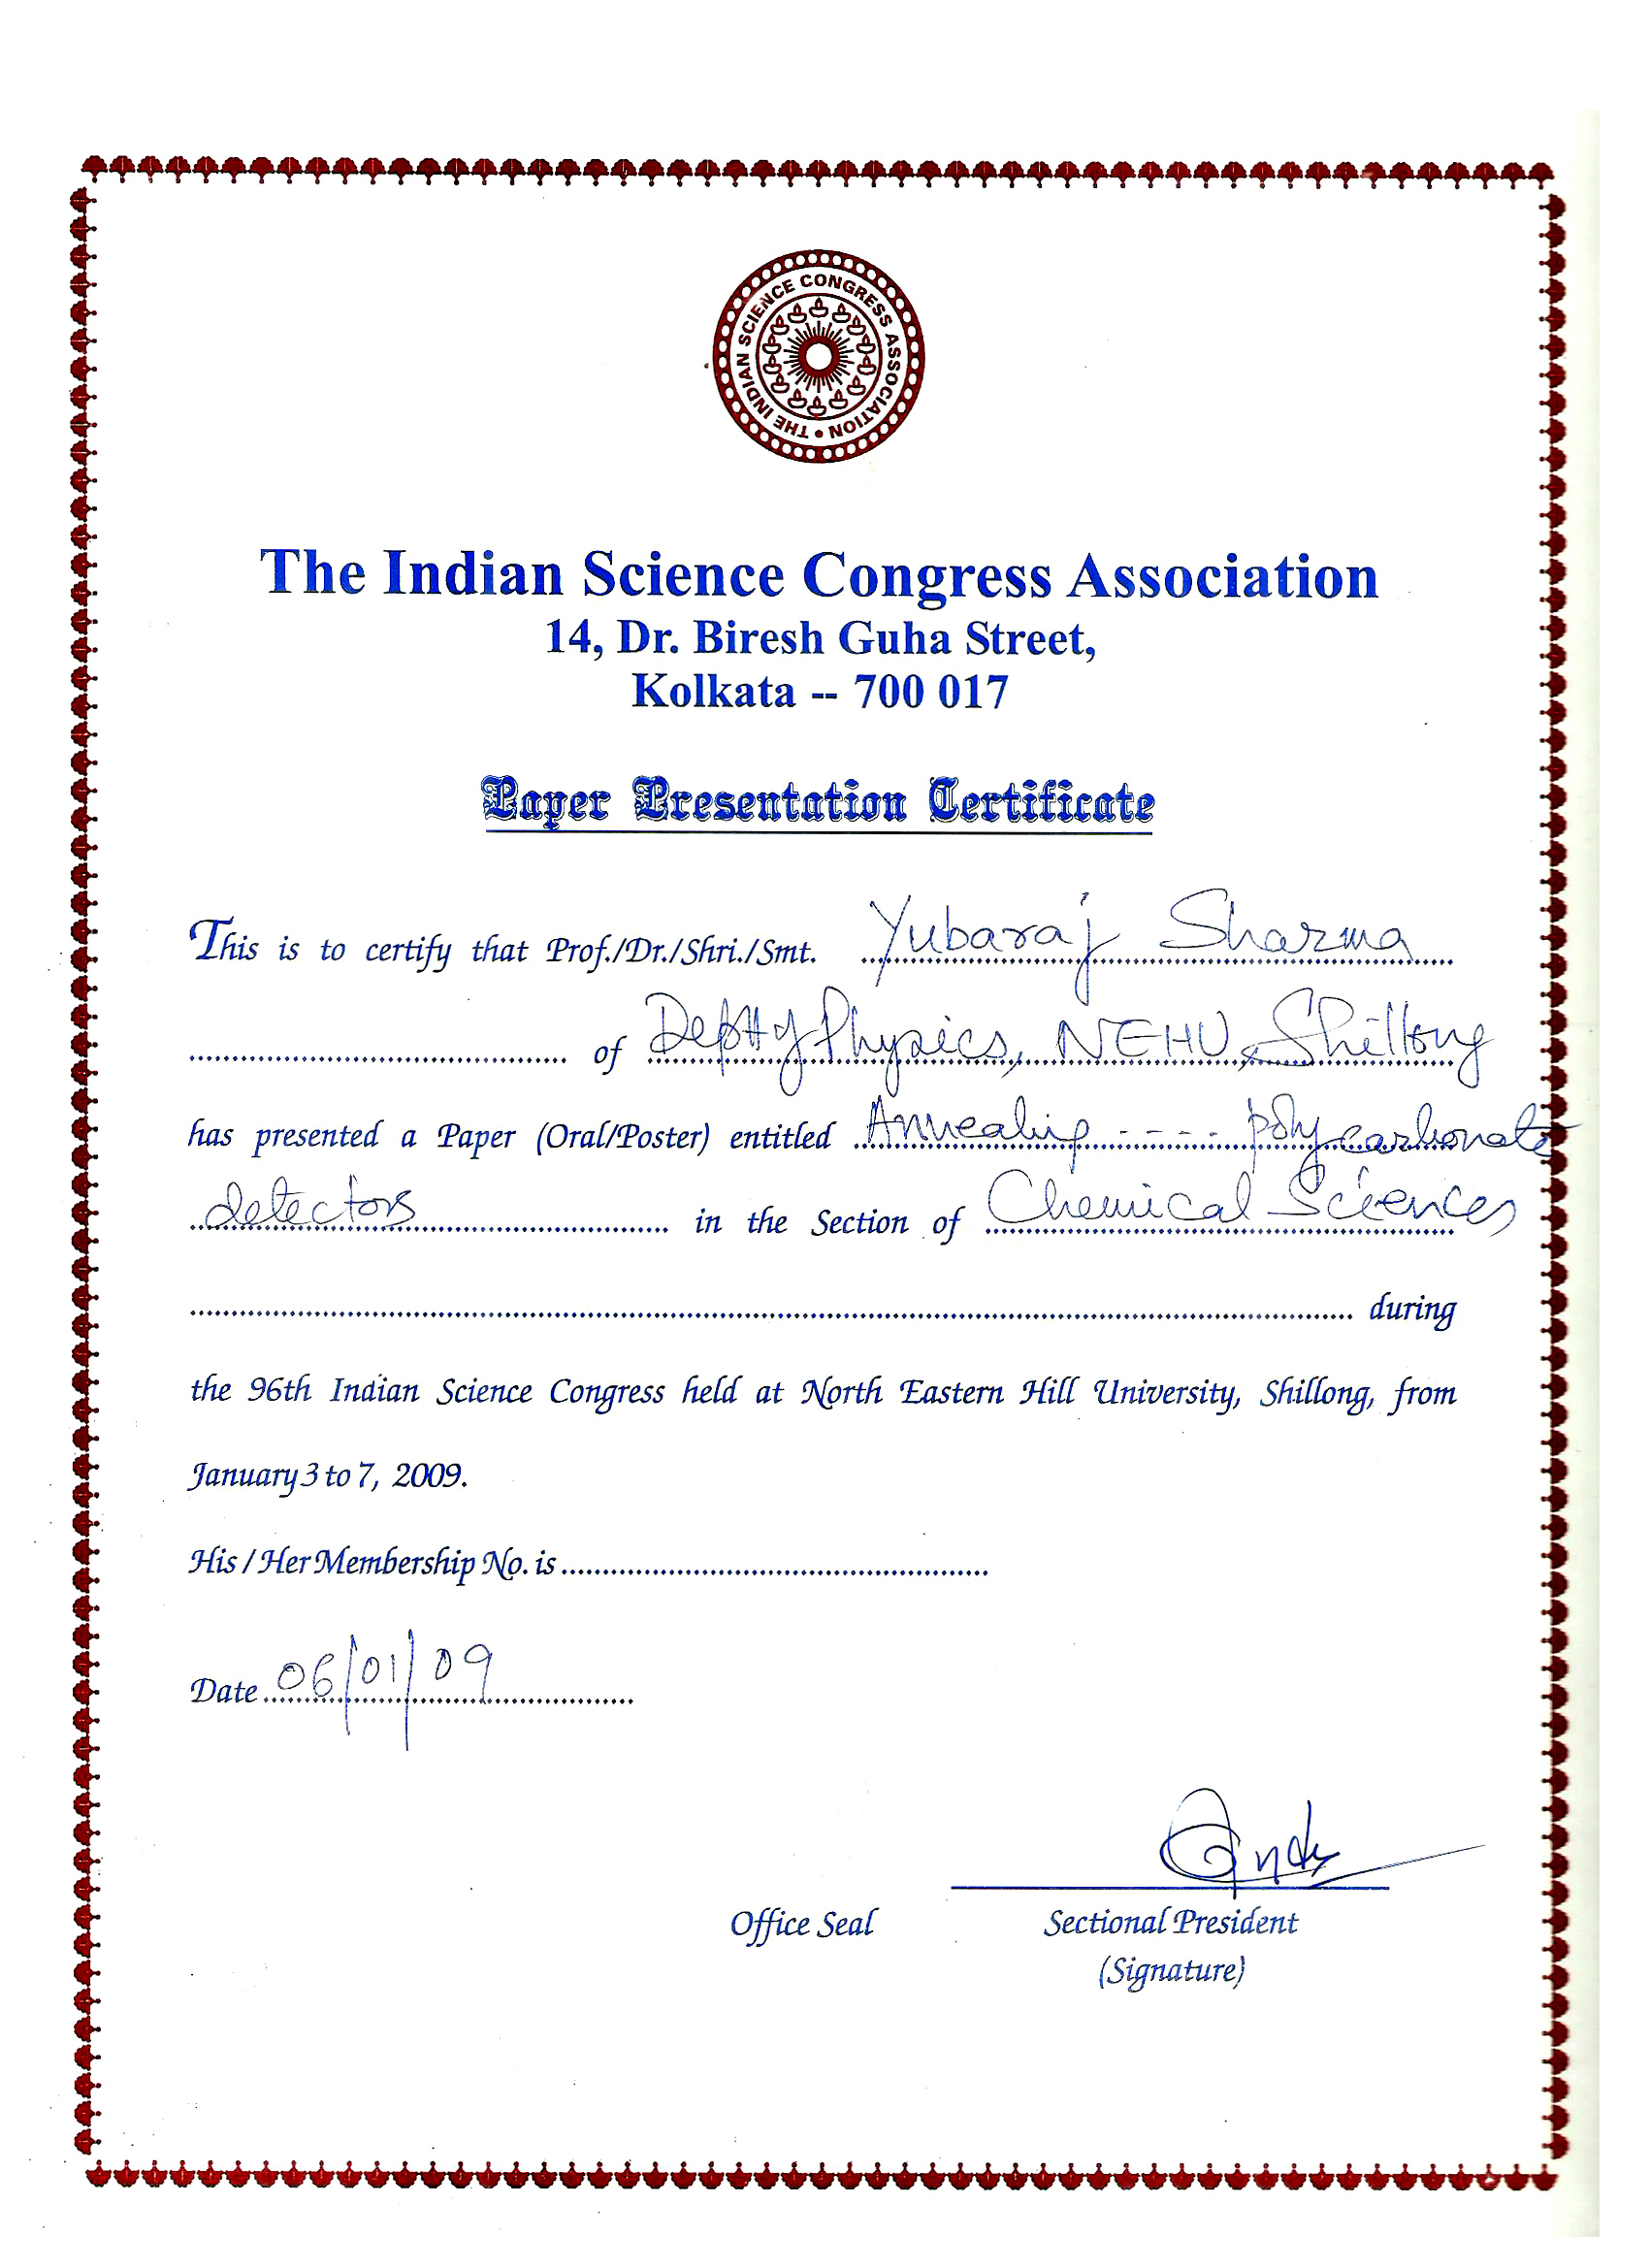 THE INDIAN SCIENCE CONGRESS ASSOCIATION
The Indian Science Congress Association
14, Dr. Biresh Guha Street,
Kolkata -- 700 017
Paper Presentation Certificate
This is to certify that Prof./Dr./Shri./Smt. Yubaraj Sharma
of Deptt of Physics, NEHU, Shillong
has presented a Paper (Oral/Poster) entitled Annealing ---- polycarbonate
detectors in the Section of Chemical Sciences
during
the 96th Indian Science Congress held at North Eastern Hill University, Shillong, from
January 3 to 7, 2009.
His / Her Membership No. is
Date 06/01/09
Office Seal Sectional President
(Signature)